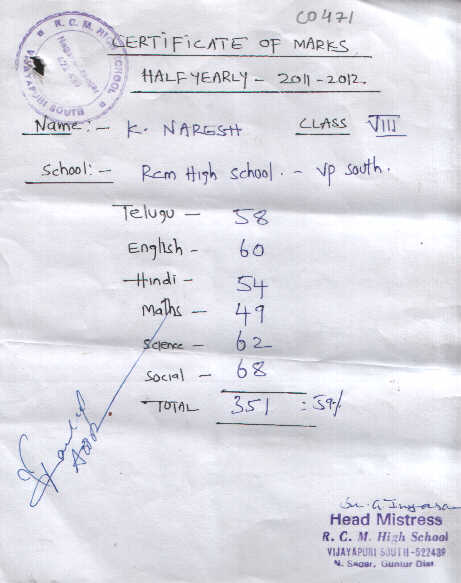 CO471
R. C. M. HIGH SCHOOL
VIJAYAPURI SOUTH
CERTIFICATE OF MARKS
HALFYEARLY - 2011-2012.
Name:- K. NARESH CLASS VIII
School:- Rcm High school. - VP south.
Telugu - 58
English - 60
Hindi - 54
Maths - 49
Science - 62
Social - 68
TOTAL 351 : 59%
Head Mistress
R. C. M. High School
VIJAYAPURI SOUTH-522439
N. Sagar, Guntur Dist